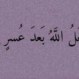 عَلُ اللَّهُ بَعْدَ عُسْرٍ